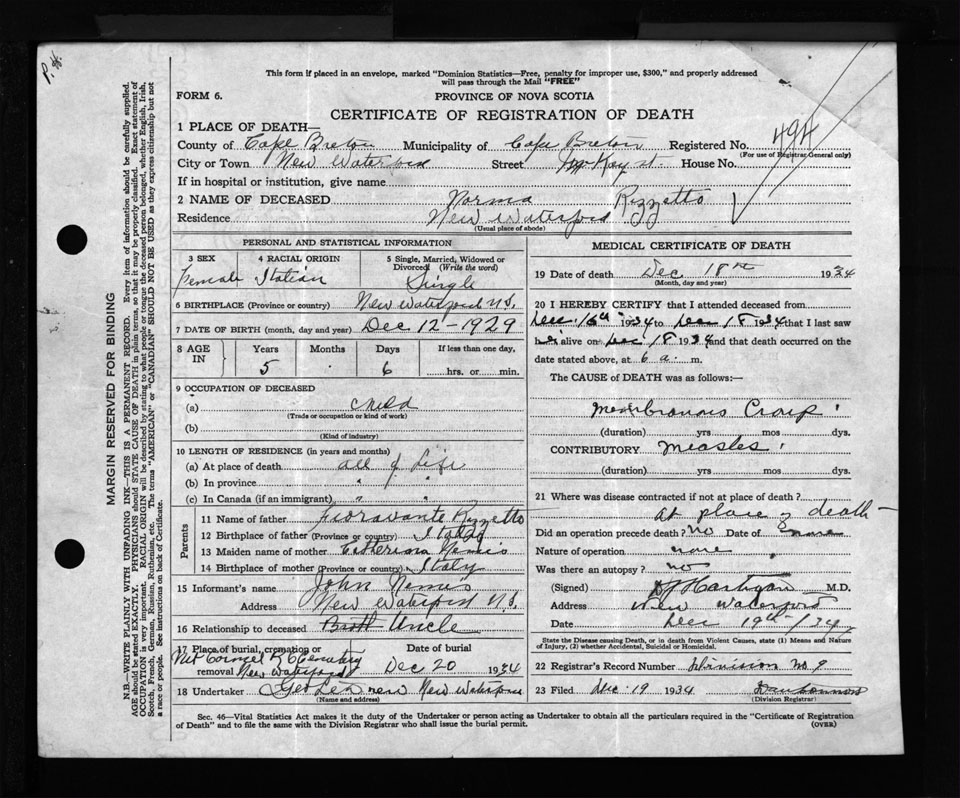 P. H.
This form if placed in an envelope, marked "Dominion Statistics—Free, penalty for improper use, $300," and properly addressed
will pass through the Mail "FREE"
FORM 6.
PROVINCE OF NOVA SCOTIA
CERTIFICATE OF REGISTRATION OF DEATH
494
1 PLACE OF DEATH—
County of Cape Breton Municipality of Cape Breton Registered No.
(For use of Registrar General only)
City or Town New Waterford Street McKay st. House No.
If in hospital or institution, give name
2 NAME OF DECEASED Norma Rizzetto
Residence New Waterford
(Usual place of abode)
MARGIN RESERVED FOR BINDING
N.B.—WRITE PLAINLY WITH UNFADING INK—THIS IS A PERMANENT RECORD. Every item of information should be carefully supplied.
AGE should be stated EXACTLY. PHYSICIANS should STATE CAUSE OF DEATH in plain terms, so that it may be properly classified. Exact statement of
OCCUPATION is very important. RACIAL ORIGIN will be described by stating to what people or tongue the deceased person belonged, whether English, Irish,
Scotch, French, German, Russian, Ruthenian, etc. The terms "AMERICAN" or "CANADIAN" SHOULD NOT BE USED as they express citizenship but not
a race or people. See instructions on back of Certificate.
PERSONAL AND STATISTICAL INFORMATION
3 SEX 4 RACIAL ORIGIN 5 Single, Married, Widowed or
Divorced (Write the word)
Female Italian Single
6 BIRTHPLACE (Province or country) New Waterford N.S.
7 DATE OF BIRTH (month, day and year) Dec 12 – 1929
8 AGE IN Years Months Days If less than one day,
5 6 hrs. or min.
9 OCCUPATION OF DECEASED
(a) child
(Trade or occupation or kind of work)
(b)
(Kind of industry)
10 LENGTH OF RESIDENCE (in years and months)
(a) At place of death all of Life
(b) In province " "
(c) In Canada (if an immigrant) " "
Parents
11 Name of father Fioravante Rizzetto
12 Birthplace of father (Province or country) Italy
13 Maiden name of mother
14 Birthplace of mother (Province or country) Italy
15 Informant's name John
Address New Waterford N.S.
16 Relationship to deceased Broth Uncle
17 Place of burial, cremation or removal Date of burial
Mt Carmel R C Cemetery
New Waterford Dec 20 1934
18 Undertaker New Waterford
(Name and address)
MEDICAL CERTIFICATE OF DEATH
19 Date of death Dec 18th 1934
(Month, day and year)
20 I HEREBY CERTIFY that I attended deceased from
Dec 16th 1934 to Dec 18 1934 that I last saw
alive on Dec 18 1934 and that death occurred on the
date stated above, at 6 a. m.
The CAUSE of DEATH was as follows:
Membranous Croup
(duration) yrs mos dys.
CONTRIBUTORY Measles
(duration) yrs. mos. dys.
21 Where was disease contracted if not at place of death?
At place of death
Did an operation precede death? no Date of none
Nature of operation none
Was there an autopsy? no
(Signed) Hartigan M.D.
Address New Waterford
Date Dec 19th/34
State the Disease causing Death, or in death from Violent Causes, state (1) Means and Nature
of Injury, (2) whether Accidental, Suicidal or Homicidal.
22 Registrar's Record Number Division No 9
23 Filed Dec. 19 1934
(Division Registrar)
Sec. 46—Vital Statistics Act makes it the duty of the Undertaker or person acting as Undertaker to obtain all the particulars required in the "Certificate of Registration
of Death" and to file the same with the Division Registrar who shall issue the burial permit.
(OVER)